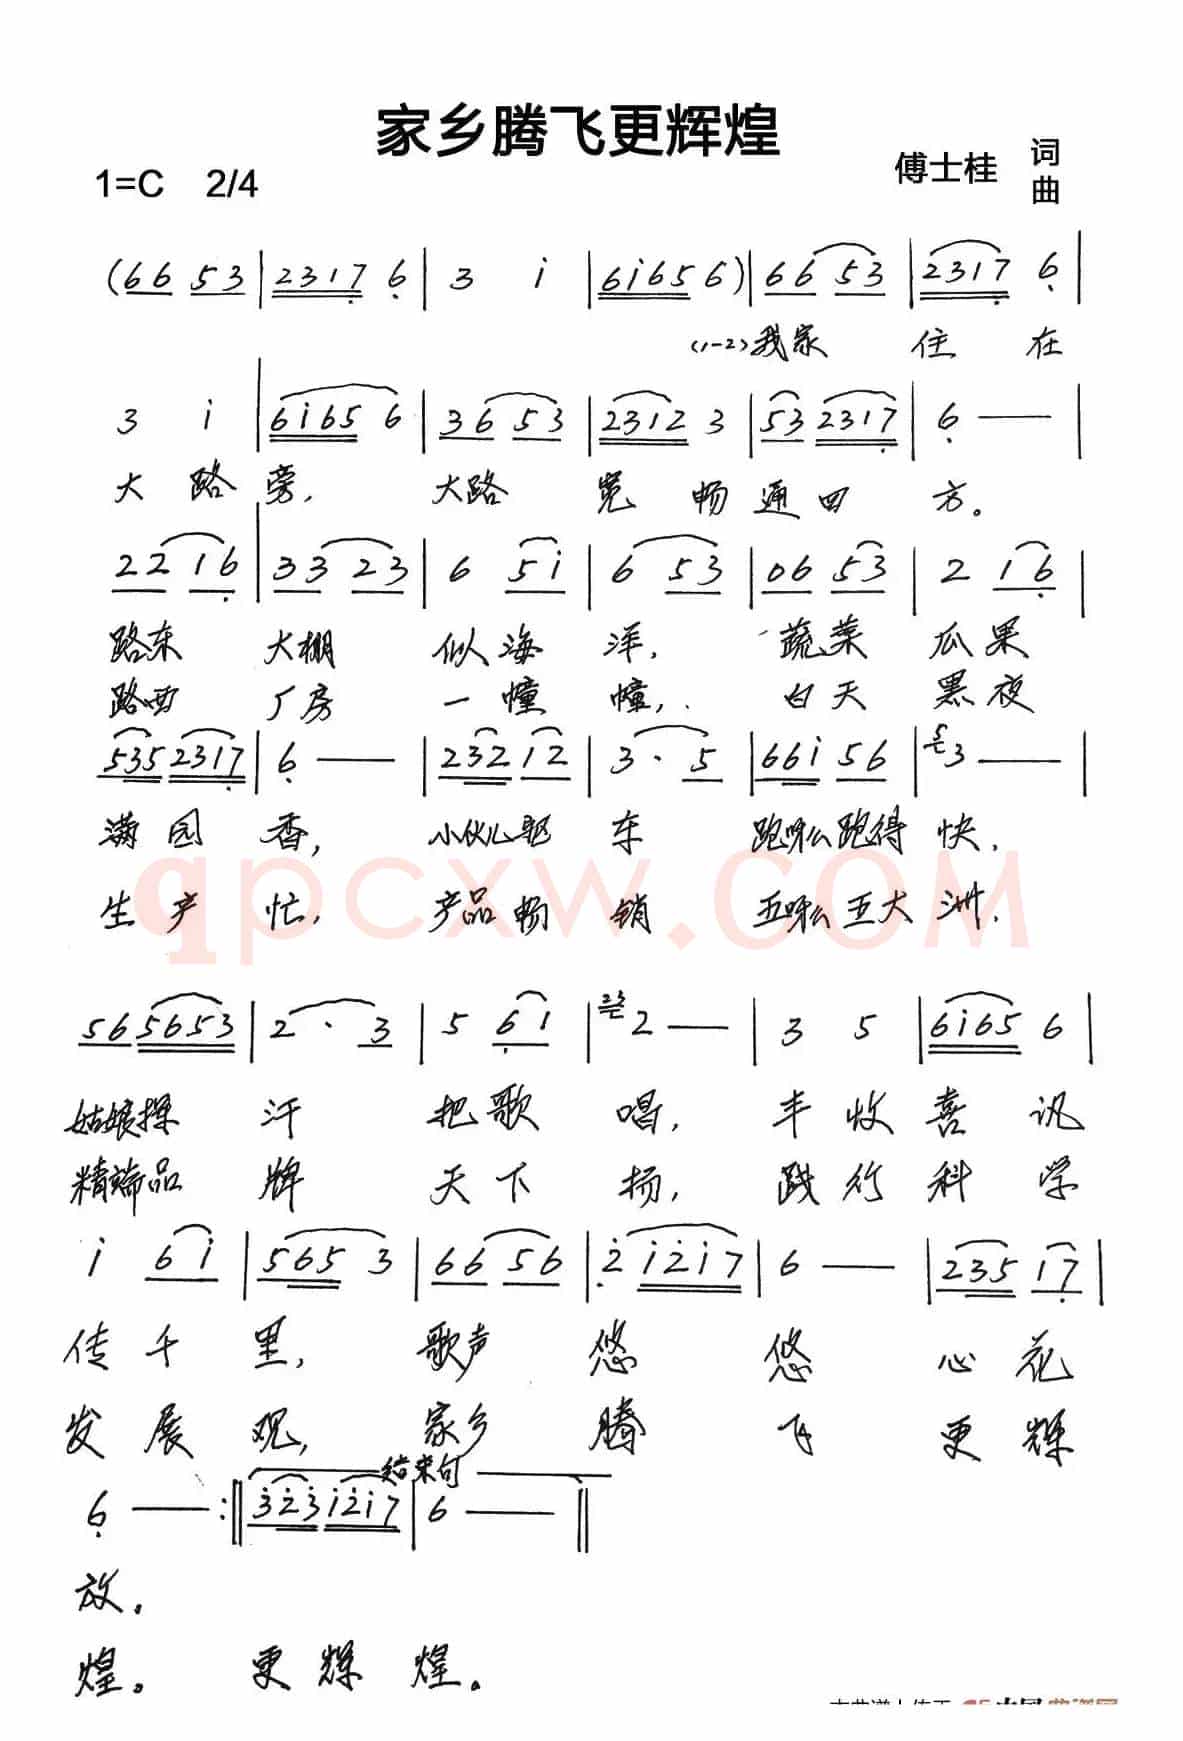 家乡腾飞更辉煌
1=C 2/4
傅士桂 词
曲
(66 53 | 2317 6 | 3 i | 6i65 6) | 66 53 | 2317 6 |
(1-2)我家 住 在
3 i | 6i65 6 | 36 53 | 2312 3 | 53 2317 | 6 — |
大路旁, 大路 宽畅通四方。
22 16 | 33 23 | 6 5i | 6 53 | 06 53 | 2 16 |
路东 大棚 似海 洋, 蔬菜 瓜果
路西 厂房 一幢 幢, 白天 黑夜
535 2317 | 6 — | 232 12 | 3 · 5 | 66i 56 | 5 3 — |
满园香, 小伙儿驱车 跑呀么跑得快,
生产忙, 产品畅销 五呀么五大洲,
56 5653 | 2 · 3 | 5 61 | 23 2 — | 3 5 | 6i65 6 |
姑娘挥汗 把歌唱, 丰收喜讯
精端品牌 天下扬, 践行科学
i 6i | 565 3 | 66 56 | 2 i2i7 | 6 — | 235 17 |
传千里, 歌声悠悠 心花
发展观, 家乡腾飞 更辉
结束句
6 — :‖ 323 i2i7 | 6 — ‖
放.
煌。 更辉煌。
qpcxw.com